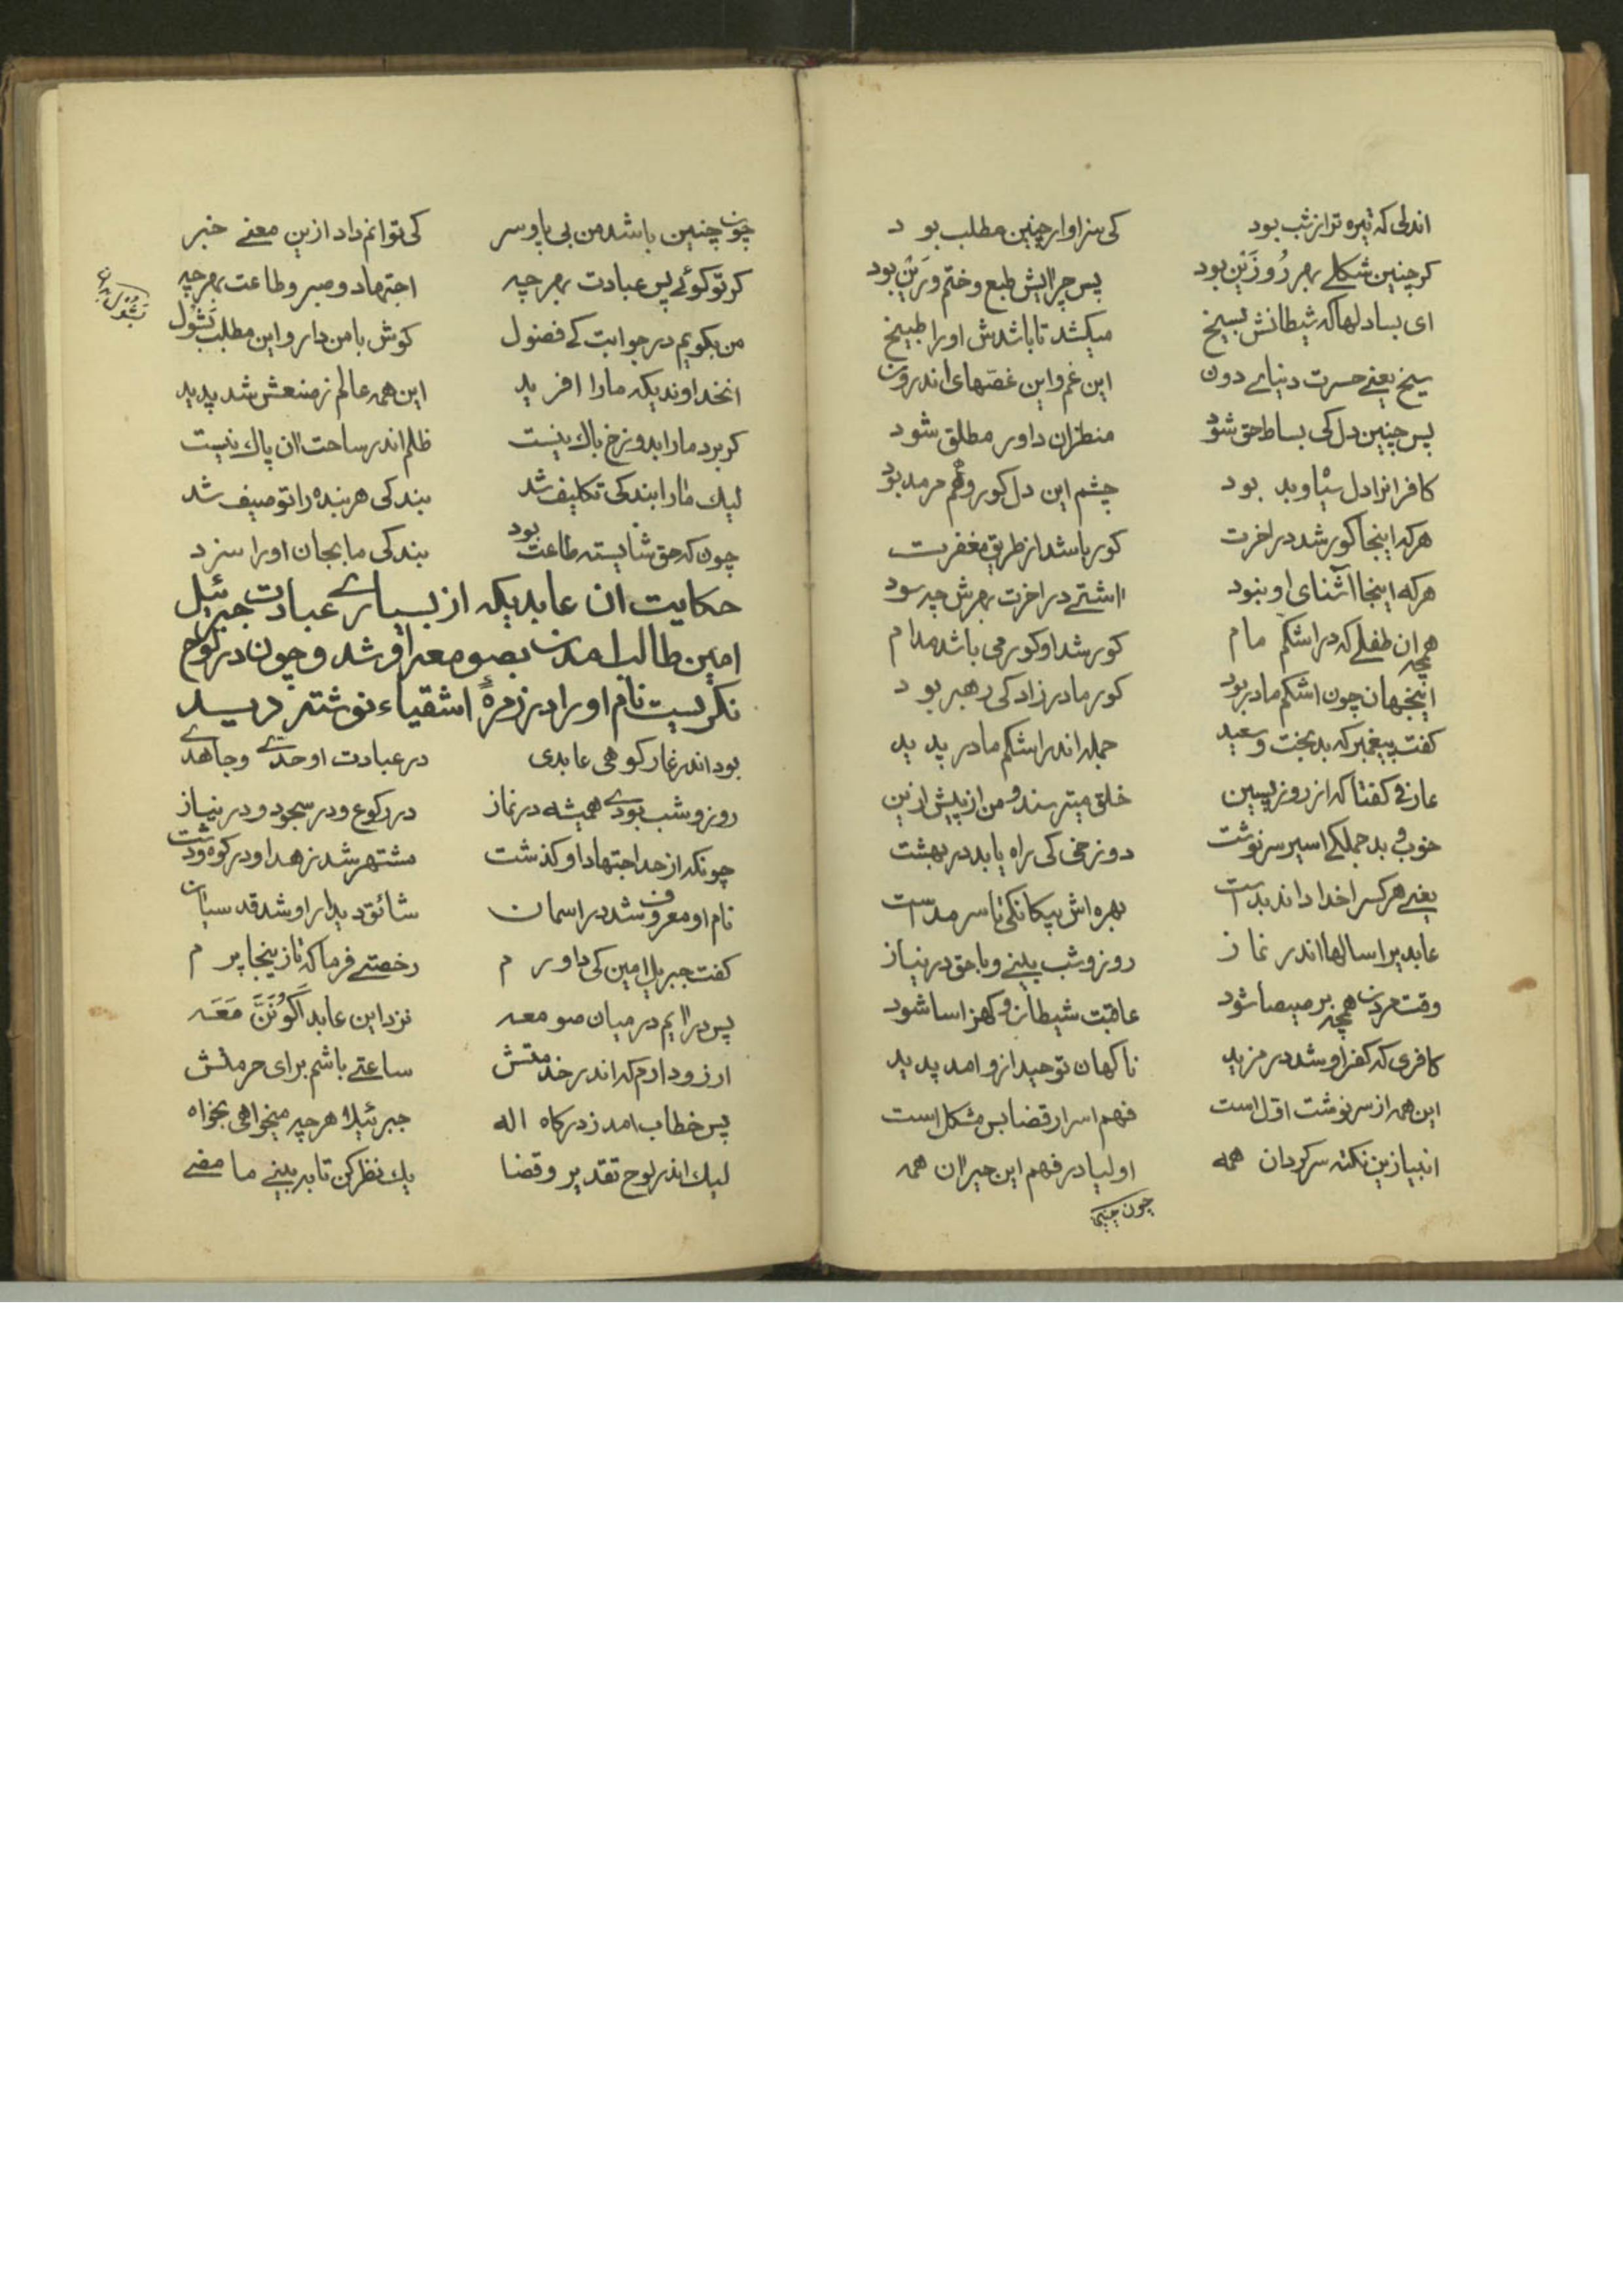 اندلی که تیره تر از شب بود کی سزاوار چنین مطلب بود
کر چنین شکلے بهر روزَنِین بود پس چرا ایش طبع و ختم و رَیْن بود
ای بسا دلها که شیطانش بسیخ میکشد تا باشدش اورا طبیخ
سیخ یعنے حسرت دنیاے دون این غم و این غصّهای اندرون
پس چنین دل کی بساط حق شود منظران داور مطلق شود
کافرانرا دل سیاه و بد بود چشم این دل کور و هم مرمد بود
هرکه اینجا کور شد در اخرت کور باشد از طریق مغفرت
هرکه اینجا اشنای او نبود اشتے در اخرت بهرش چه سود
همچه ان طفلے که در اشکم مام کور شد او کور می باشد مدام
اینجهان چون اشکم مادر بود کور مادرزاد کی رهبر بود
کفت پیغمبر که بدبخت و سعید جمله اندر اشکم مادر پدید
عارفی کفتا که از روز پسین خلق میترسند و من از پیش ازین
خوب و بد جملکے اسیر سرنوشت دوزخی کی راه یابد در بهشت
یعنے هرکس را خدا داند بد است بهره اش بیکانکی تا سرمد است
عابد یرا سالها اندر نماز روز و شب بینے و با حق در نیاز
وقت مردن همچه برصیصا شود عاقبت شیطان و کهزاسا شود
کافری که کفر او شد در مزید ناکهان توحید ازو امد پدید
این همه از سرنوشت اوّل است فهم اسرار قضا بس مشکل است
انبیا زین نکته سرکردان همه اولیا در فهم این حیران همه
چون چنین
چون چنین باشد من بی پا و سر کی توانم داد ازین معنے خبر
کر تو کوئے پس عبادت بهر چه اجتهاد و صبر و طاعت بهر چه
من بکویم در جوابت کے فضول کوش با من دار و این مطلب بَشُول
انخداوندیکه مارا افرید این همه عالم ز صنعش شد پدید
کر برد مارا بدوزخ باک نیست ظلم اندر ساحت ان پاک نیست
لیک مارا بندکی تکلیف شد بندکی هر بنده را توصیف شد
چون که حق شایسته طاعت بود بندکی ما بجان اورا سزد
حکایت ان عابدیکه از بسیارے عبادت جبرئیل
امین طالب امدن بصومعه او شد و چون در لوح
نکریست نام اورا در زمرهٔ اشقیاء نوشته دید
بود اندر غار کوهی عابدی در عبادت اوحدے وجاهدے
روز و شب بودے همیشه در نماز در رکوع و در سجود و در نیاز
چونکه از حد اجتهاد او کذشت مشتهر شد زهد او در کوه و دشت
نام او معروف شد در اسمان شائق دیدار او شد قدسیان
کفت جبریل امین کی داورم رخصتے فرما که تا زینجا پرم
پس درایم در میان صومعه نزد این عابد اَکُونَنَّ مَعَه
ارزو دارم که اندر خدمتش ساعتے باشم برای حرمتش
پس خطاب امد ز درکاه اله جبرئیلا هرچه میخواهی بخواه
لیک اندر لوح تقدیر و قضا یک نظر کن تا به بینے ما مضے